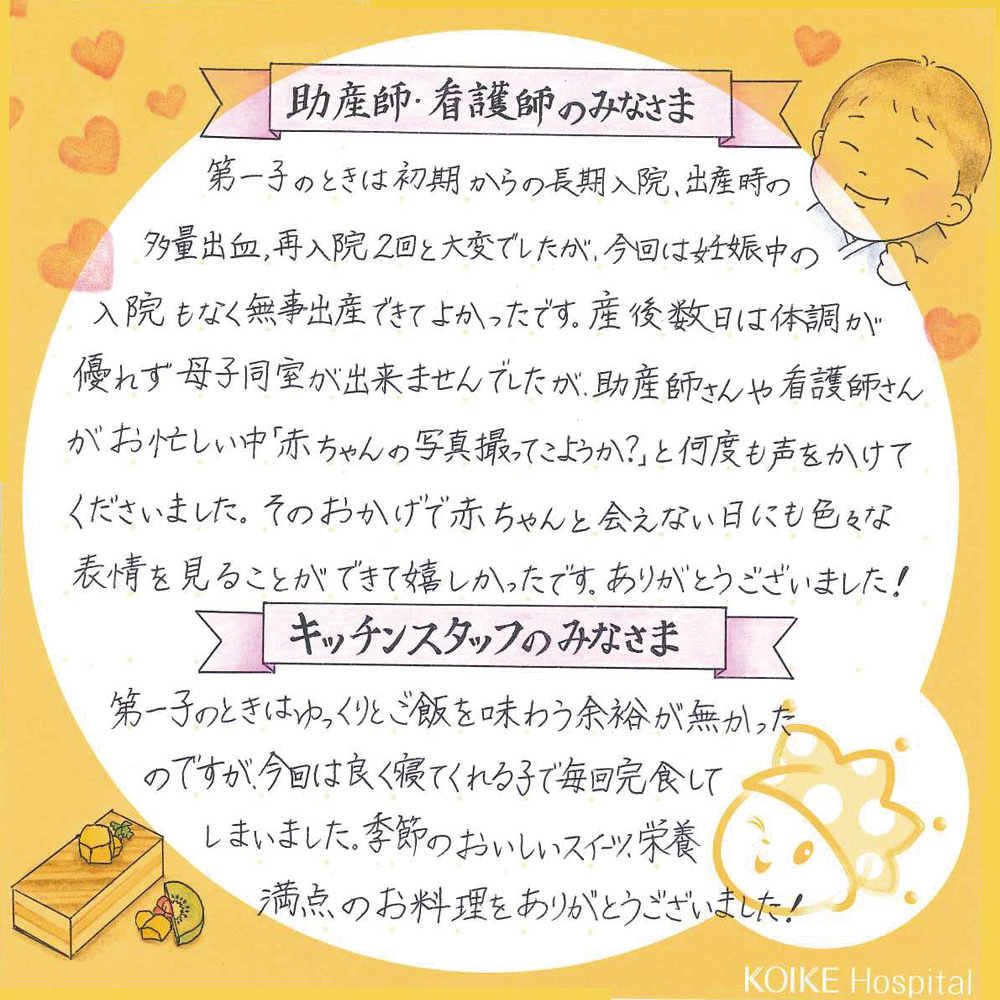 助産師・看護師のみなさま
第一子のときは初期からの長期入院、出産時の
多量出血、再入院2回と大変でしたが、今回は妊娠中の
入院もなく無事出産できてよかったです。産後数日は体調が
優れず母子同室が出来ませんでしたが、助産師さんや看護師さん
がお忙しい中「赤ちゃんの写真撮ってこようか?」と何度も声をかけて
くださいました。そのおかげで赤ちゃんと会えない日にも色々な
表情を見ることができて嬉しかったです。ありがとうございました!
キッチンスタッフのみなさま
第一子のときはゆっくりとご飯を味わう余裕が無かった
のですが、今回は良く寝てくれる子で毎回完食して
しまいました。季節のおいしいスイーツ、栄養
満点のお料理をありがとうございました!
KOIKE Hospital